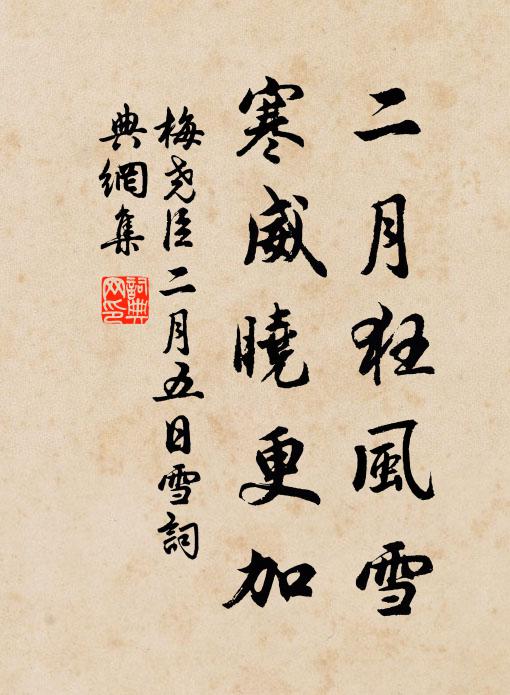 二月狂風雪
寒威曉更加
梅堯臣二月五日雪詞
典網集
詞典
网印